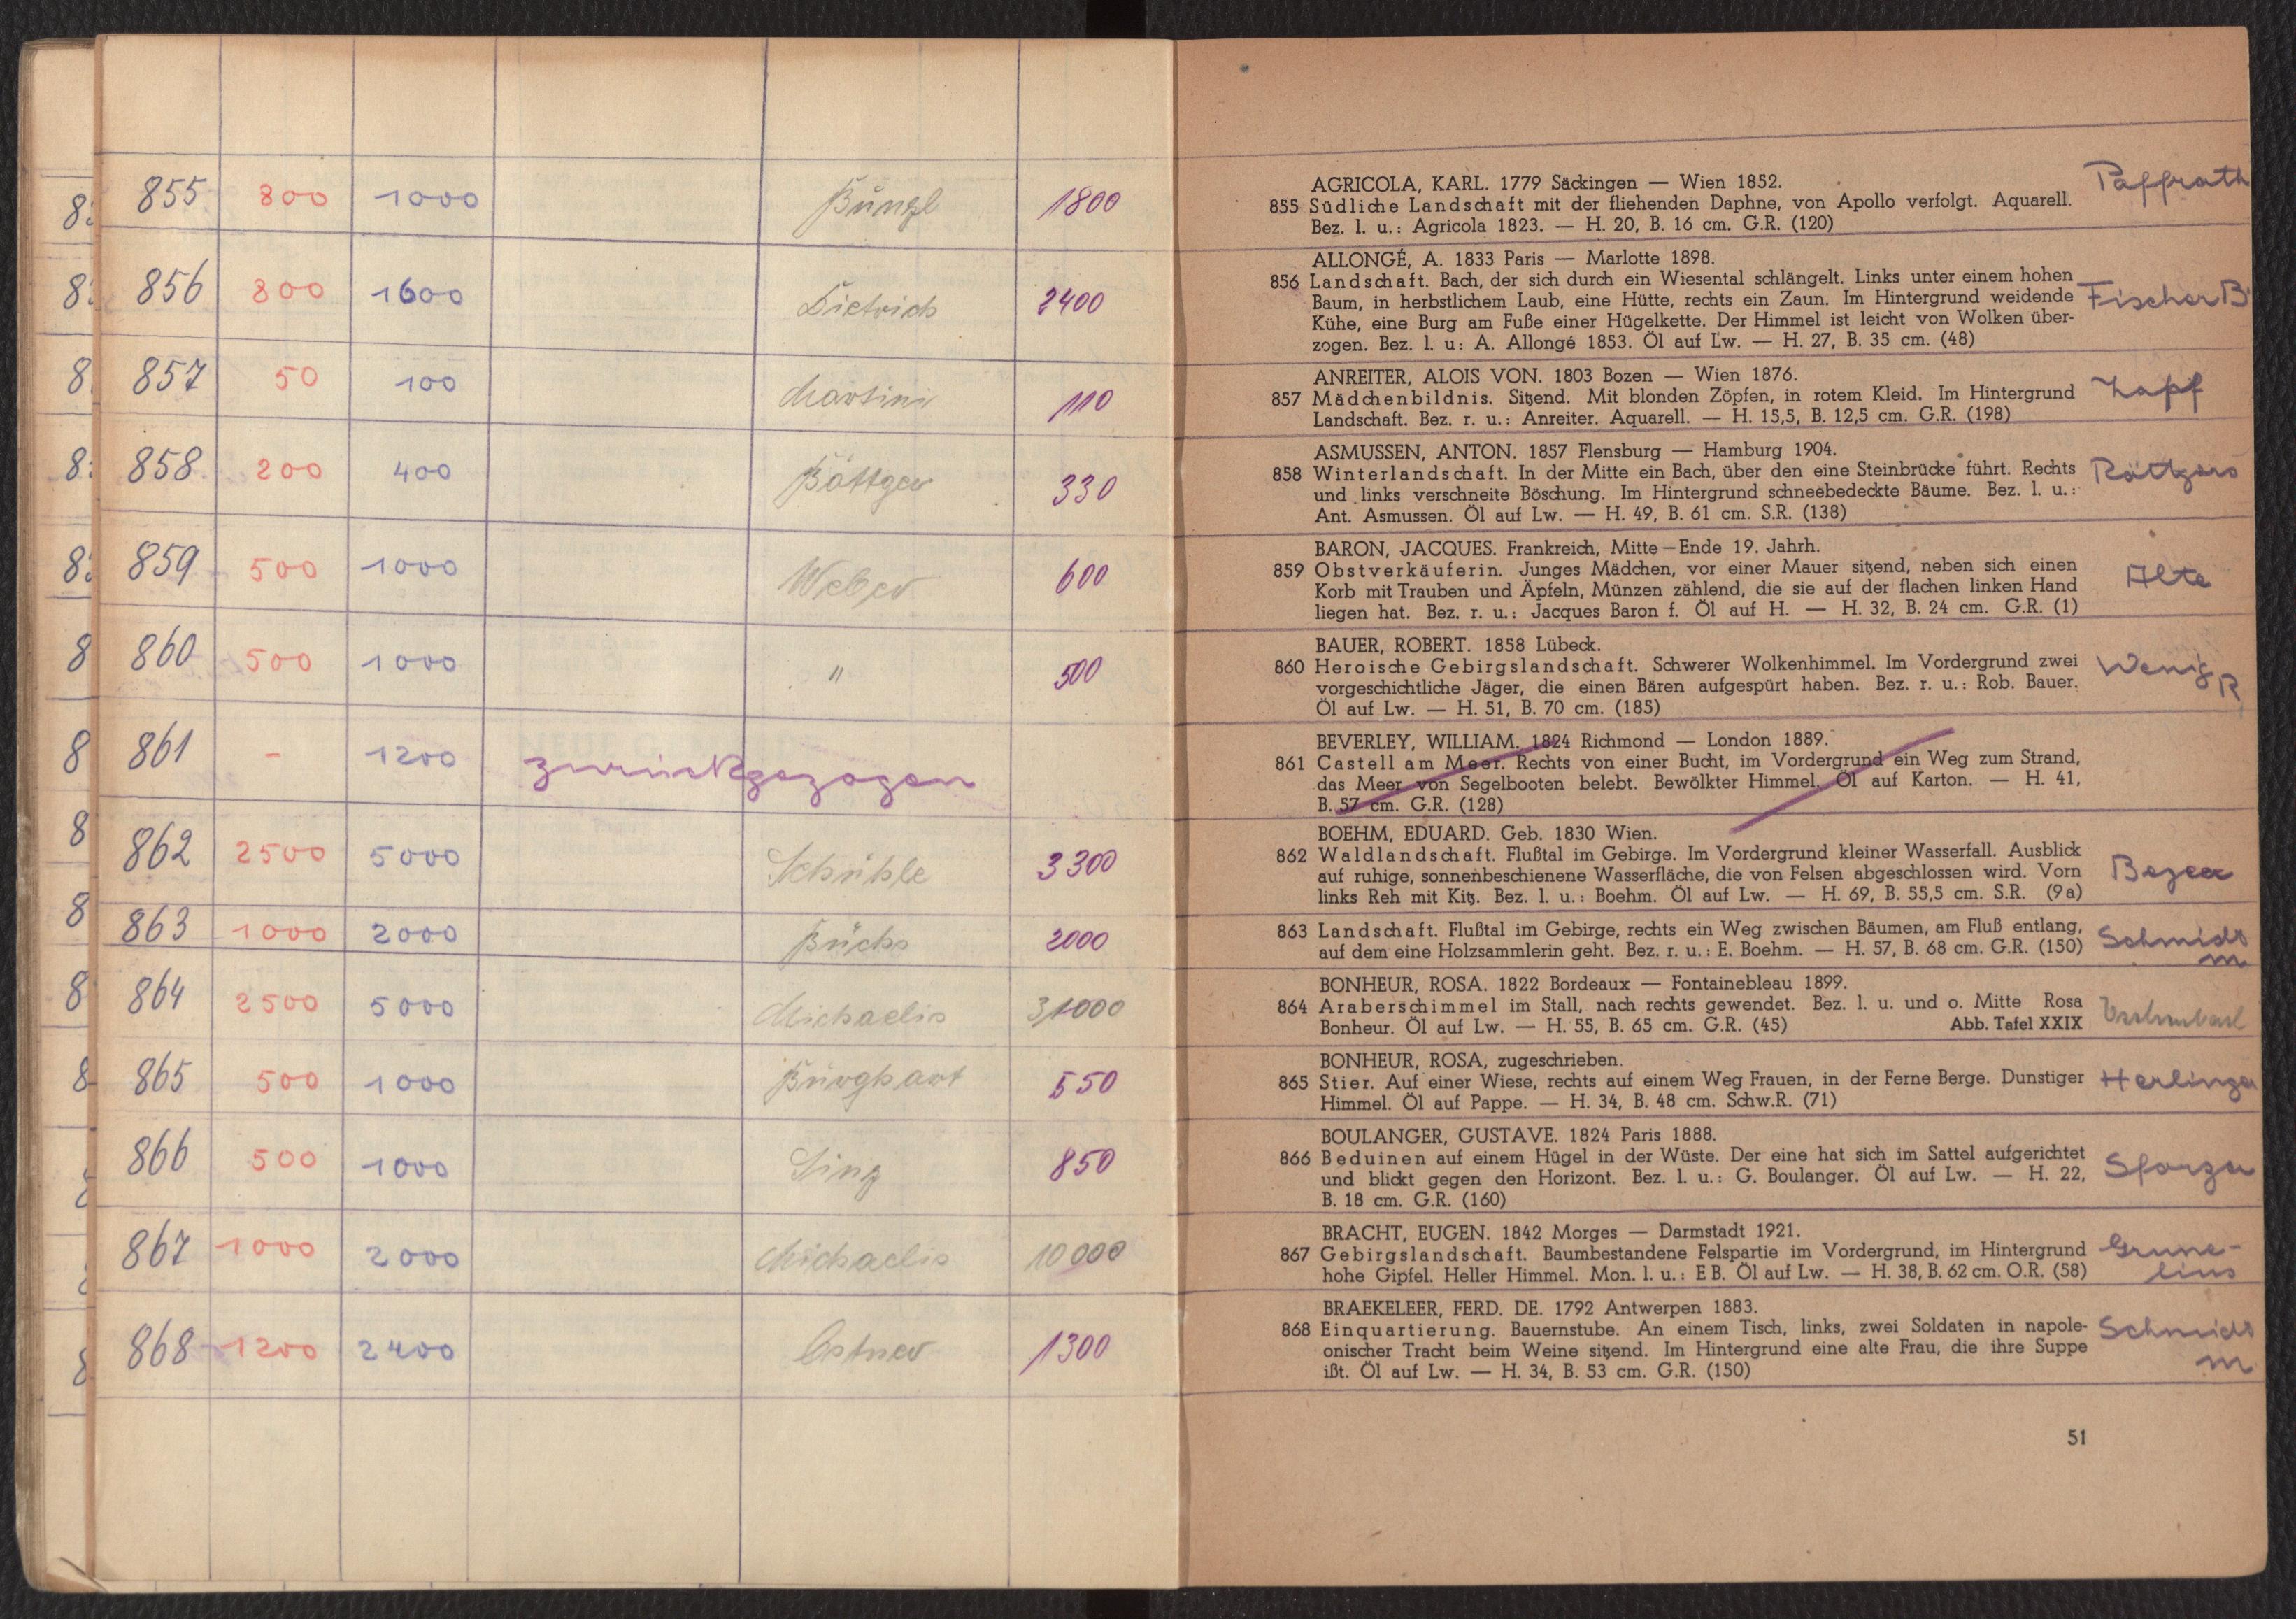 855 800 1000 Büngl 1800
856 800 1600 Dietrich 2400
857 50 100 Martini 110
858 200 400 Böttger 330
859 500 1000 Weber 600
860 500 1000 " 500
861 - 1200 zurückgezogen
862 2500 5000 3300
863 1000 2000 Büchs 2000
864 2500 5000 Michaelis 31000
865 500 1000 Burghart 550
866 500 1000 850
867 1000 2000 Michaelis 10000
868 1200 2400 Ostner 1300
AGRICOLA, KARL. 1779 Säckingen — Wien 1852. Paffrath
855 Südliche Landschaft mit der fliehenden Daphne, von Apollo verfolgt. Aquarell.
Bez. l. u.: Agricola 1823. — H. 20, B. 16 cm. G.R. (120)
ALLONGÉ, A. 1833 Paris — Marlotte 1898.
856 Landschaft. Bach, der sich durch ein Wiesental schlängelt. Links unter einem hohen
Baum, in herbstlichem Laub, eine Hütte, rechts ein Zaun. Im Hintergrund weidende Fischer B
Kühe, eine Burg am Fuße einer Hügelkette. Der Himmel ist leicht von Wolken über-
zogen. Bez. l. u: A. Allongé 1853. Öl auf Lw. — H. 27, B. 35 cm. (48)
ANREITER, ALOIS VON. 1803 Bozen — Wien 1876.
857 Mädchenbildnis. Sitzend. Mit blonden Zöpfen, in rotem Kleid. Im Hintergrund Zapf
Landschaft. Bez. r. u.: Anreiter. Aquarell. — H. 15,5, B. 12,5 cm. G.R. (198)
ASMUSSEN, ANTON. 1857 Flensburg — Hamburg 1904.
858 Winterlandschaft. In der Mitte ein Bach, über den eine Steinbrücke führt. Rechts Röttgers
und links verschneite Böschung. Im Hintergrund schneebedeckte Bäume. Bez. l. u.:
Ant. Asmussen. Öl auf Lw. — H. 49, B. 61 cm. S.R. (138)
BARON, JACQUES. Frankreich, Mitte—Ende 19. Jahrh.
859 Obstverkäuferin. Junges Mädchen, vor einer Mauer sitzend, neben sich einen Alte
Korb mit Trauben und Äpfeln, Münzen zählend, die sie auf der flachen linken Hand
liegen hat. Bez. r. u.: Jacques Baron f. Öl auf H. — H. 32, B. 24 cm. G.R. (1)
BAUER, ROBERT. 1858 Lübeck.
860 Heroische Gebirgslandschaft. Schwerer Wolkenhimmel. Im Vordergrund zwei Wenig
vorgeschichtliche Jäger, die einen Bären aufgespürt haben. Bez. r. u.: Rob. Bauer. R
Öl auf Lw. — H. 51, B. 70 cm. (185)
BEVERLEY, WILLIAM. 1824 Richmond — London 1889.
861 Castell am Meer. Rechts von einer Bucht, im Vordergrund ein Weg zum Strand,
das Meer von Segelbooten belebt. Bewölkter Himmel. Öl auf Karton. — H. 41,
B. 57 cm. G.R. (128)
BOEHM, EDUARD. Geb. 1830 Wien.
862 Waldlandschaft. Flußtal im Gebirge. Im Vordergrund kleiner Wasserfall. Ausblick
auf ruhige, sonnenbeschienene Wasserfläche, die von Felsen abgeschlossen wird. Vorn
links Reh mit Kitz. Bez. l. u.: Boehm. Öl auf Lw. — H. 69, B. 55,5 cm. S.R. (9a)
863 Landschaft. Flußtal im Gebirge, rechts ein Weg zwischen Bäumen, am Fluß entlang, Schmidt
auf dem eine Holzsammlerin geht. Bez. r. u.: E. Boehm. — H. 57, B. 68 cm. G.R. (150) m
BONHEUR, ROSA. 1822 Bordeaux — Fontainebleau 1899.
864 Araberschimmel im Stall, nach rechts gewendet. Bez. l. u. und o. Mitte Rosa
Bonheur. Öl auf Lw. — H. 55, B. 65 cm. G.R. (45) Abb. Tafel XXIX
BONHEUR, ROSA, zugeschrieben.
865 Stier. Auf einer Wiese, rechts auf einem Weg Frauen, in der Ferne Berge. Dunstiger Herlinger
Himmel. Öl auf Pappe. — H. 34, B. 48 cm. Schw.R. (71)
BOULANGER, GUSTAVE. 1824 Paris 1888.
866 Beduinen auf einem Hügel in der Wüste. Der eine hat sich im Sattel aufgerichtet Sforza
und blickt gegen den Horizont. Bez. l. u.: G. Boulanger. Öl auf Lw. — H. 22,
B. 18 cm. G.R. (160)
BRACHT, EUGEN. 1842 Morges — Darmstadt 1921.
867 Gebirgslandschaft. Baumbestandene Felspartie im Vordergrund, im Hintergrund Grune-
hohe Gipfel. Heller Himmel. Mon. l. u.: E B. Öl auf Lw. — H. 38, B. 62 cm. O.R. (58) lius
BRAEKELEER, FERD. DE. 1792 Antwerpen 1883.
868 Einquartierung. Bauernstube. An einem Tisch, links, zwei Soldaten in napole- Schmidt
onischer Tracht beim Weine sitzend. Im Hintergrund eine alte Frau, die ihre Suppe m
ißt. Öl auf Lw. — H. 34, B. 53 cm. G.R. (150)
51